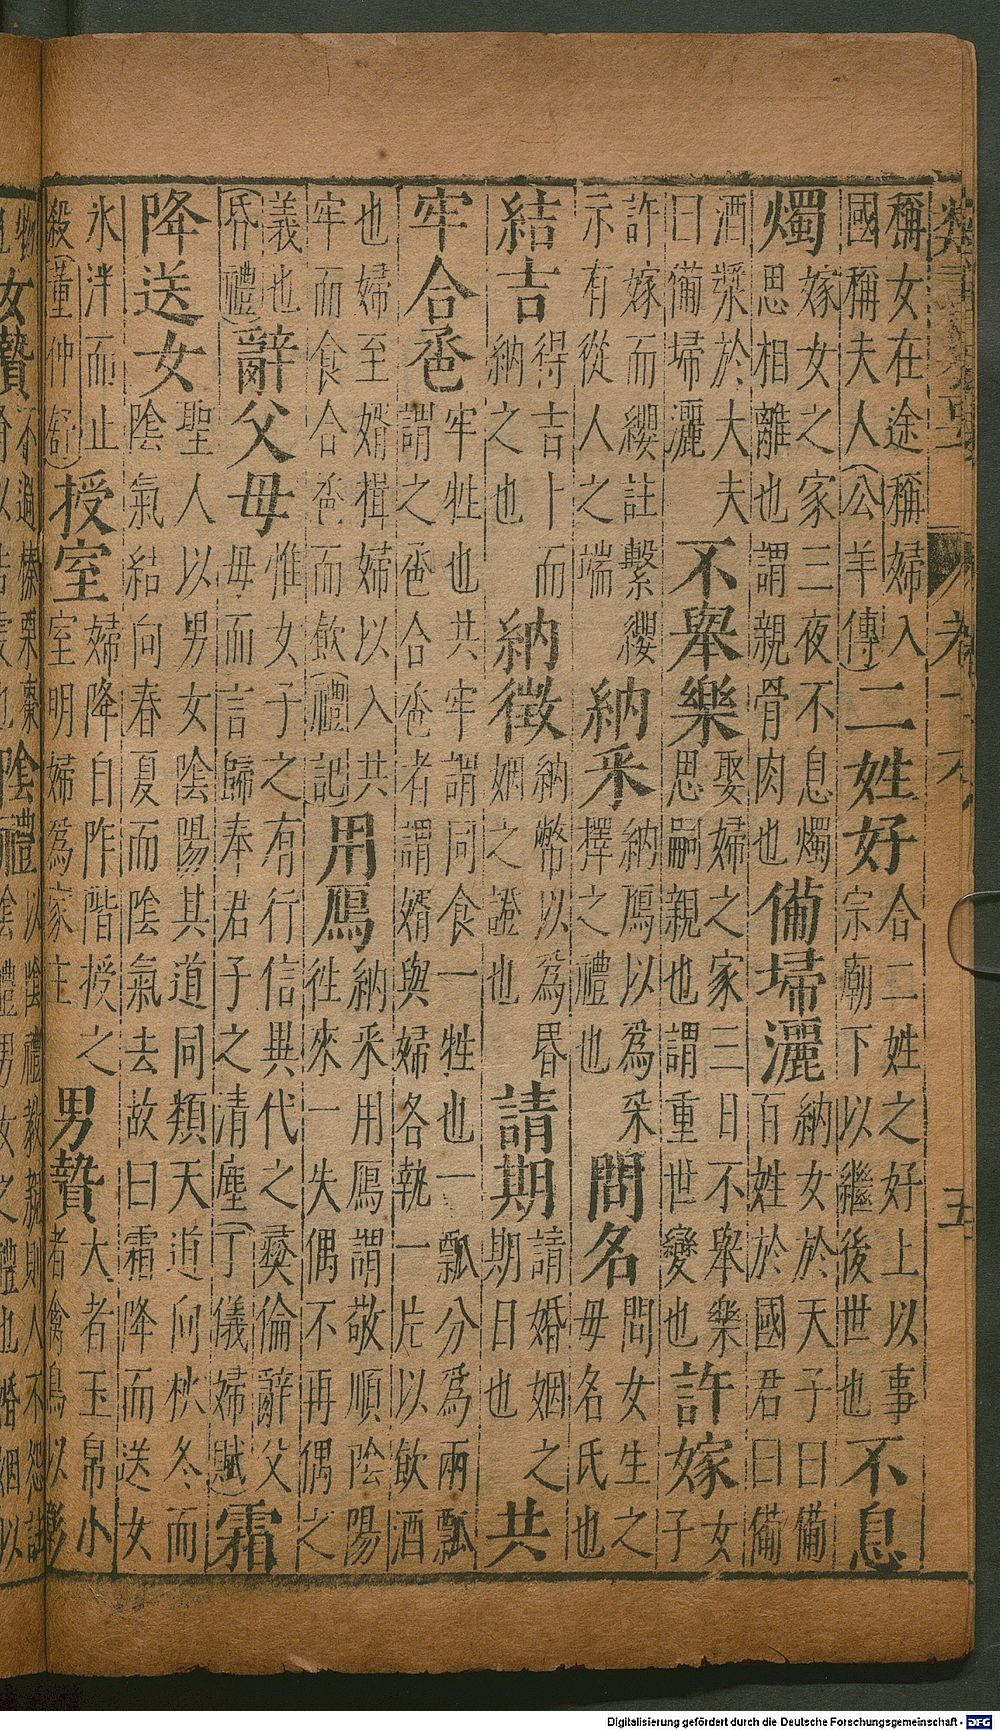 稱女在途稱婦入
國稱夫人(公羊傳)
二姓好
合二姓之好上以事
宗廟下以繼後世也
不息
燭
嫁女之家三夜不息燭
思相離也謂親骨肉也
備埽灑
納女於天子曰備
百姓於國君曰備
酒漿於大夫
曰備埽灑
不舉樂
娶婦之家三日不舉樂
思嗣親也謂重世變也
許嫁
女
子
許嫁而纓註繫纓
示有從人之端
納采
納鴈以為采
擇之禮也
問名
問女生之
母名氏也
結吉
得吉卜而
納之也
納徵
納幣以為昬
姻之證也
請期
請婚姻之
期日也
共
牢合巹
牢牲也共牢謂同食一牲也一瓢分為兩瓢
謂之巹合巹者謂婿與婦各執一片以飲酒
也婦至婿揖婦以入共
牢而食合巹而飲(禮記)
用鴈
納采用鴈謂敬順陰陽
往來一失偶不再偶之
義也
(昏禮)
辭父母
惟女子之有行信異代之彝倫辭父
母而言歸奉君子之清塵(丁儀婦賦)
霜
降送女
聖人以男女陰陽其道同類天道向秋冬而
陰氣結向春夏而陰氣去故曰霜降而送女
氷泮而止
殺(董仲舒)
授室
婦降自阼階授之
室明婦為家主
男贄
大者玉帛小
者禽鳥以彰
物
女贄
不過榛栗棗
陰禮
以陰禮教親則人不怨
陰禮男女之禮也婚姻以
Digitalisierung gefördert durch die Deutsche Forschungsgemeinschaft - DFG